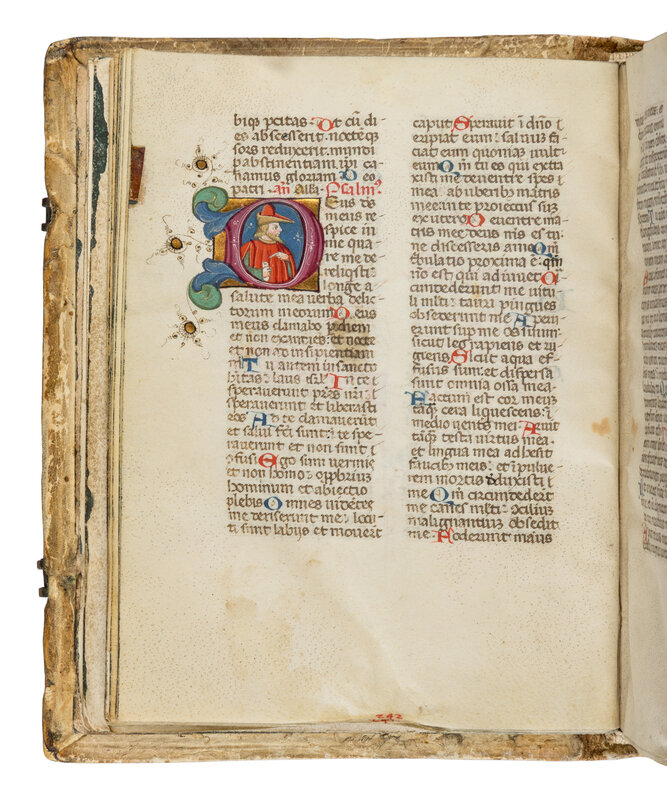 biq3 pcitas. Ut cū di-
es abscesserit. noctēq3
sors reduxerit. mundi
p abstinentiam. ipi ca-
namus gloriam. Deo
patri. añ. Psalm9
Deus ds
meus re-
spice in
me qua-
re me de
reliqsti:
longe a
salute mea verba delic-
torum meorum. Deus
meus clamabo p diem
et non exaudies: et nocte
et non ad insipientiam
m. Tu autem in sancto
hitas: laus isrl. In te
speraverunt pres nri:
speraverunt et liberasti
eos. Ad te clamaverunt
et salvi fci sunt: i te spe-
raverunt et non sunt
ofusi. Ego sum vermis
et non homo: opprobrium
hominum et abiectio
plebis. Omnes videtes
me deriserunt me: locu-
ti sunt labijs et moverūt
caput. Speravit ī dño
eripiat eum: salvum fa-
ciat eum quoniam vult
eum. Qm tu es qui extra
xisti me de ventre: spes
mea ab uberib9 matris
mee. in te proiectus sum
ex utero. De ventre ma-
tris mee deus ms es tu:
ne discesseris a me. Qm
tbulatio proxima ē: qm
nō est qui adiuvet.
Circumdederunt me vitu
li multi: tauri pingues
obsederunt me. Aperu-
erunt sup me os suum:
sicut leo rapiens et ru-
giens. Sicut aqua ef-
fusus sum: et dispersa
sunt omnia ossa mea.
Factum est cor meum
taq3 cera liquescens: ī
medio ventris mei. Aruit
taq3 testa virtus mea.
et lingua mea adhesit
faucib9 meis: et ī pulve-
rem mortis deduxisti
me. Qm circumdederūt
me canes multi: cōciliū
malignantium obsedit
me. Foderunt manus
242